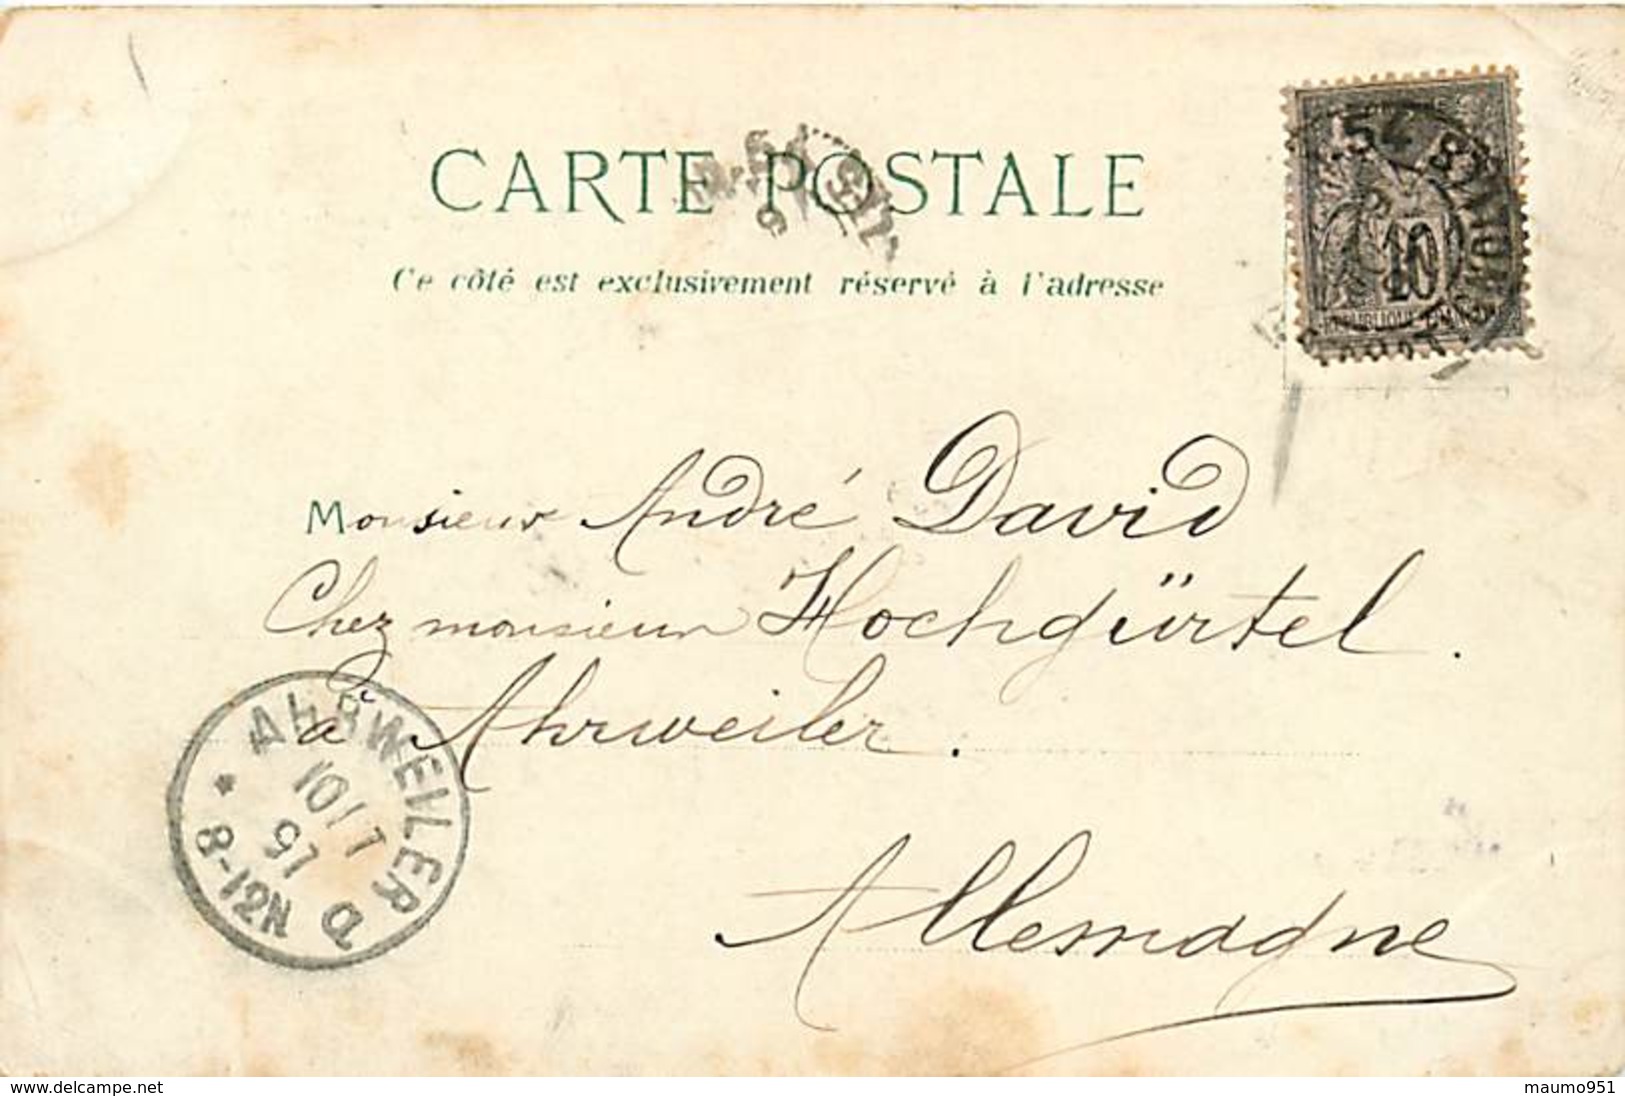 CARTE POSTALE
Ce côté est exclusivement réservé à l'adresse
10
Monsieur André David
Chez monsieur Hochgürtel.
à Ahrweiler.
Allemagne
AHRWEILER
10/7
97
8-12N
www.delcampe.net
maumo951